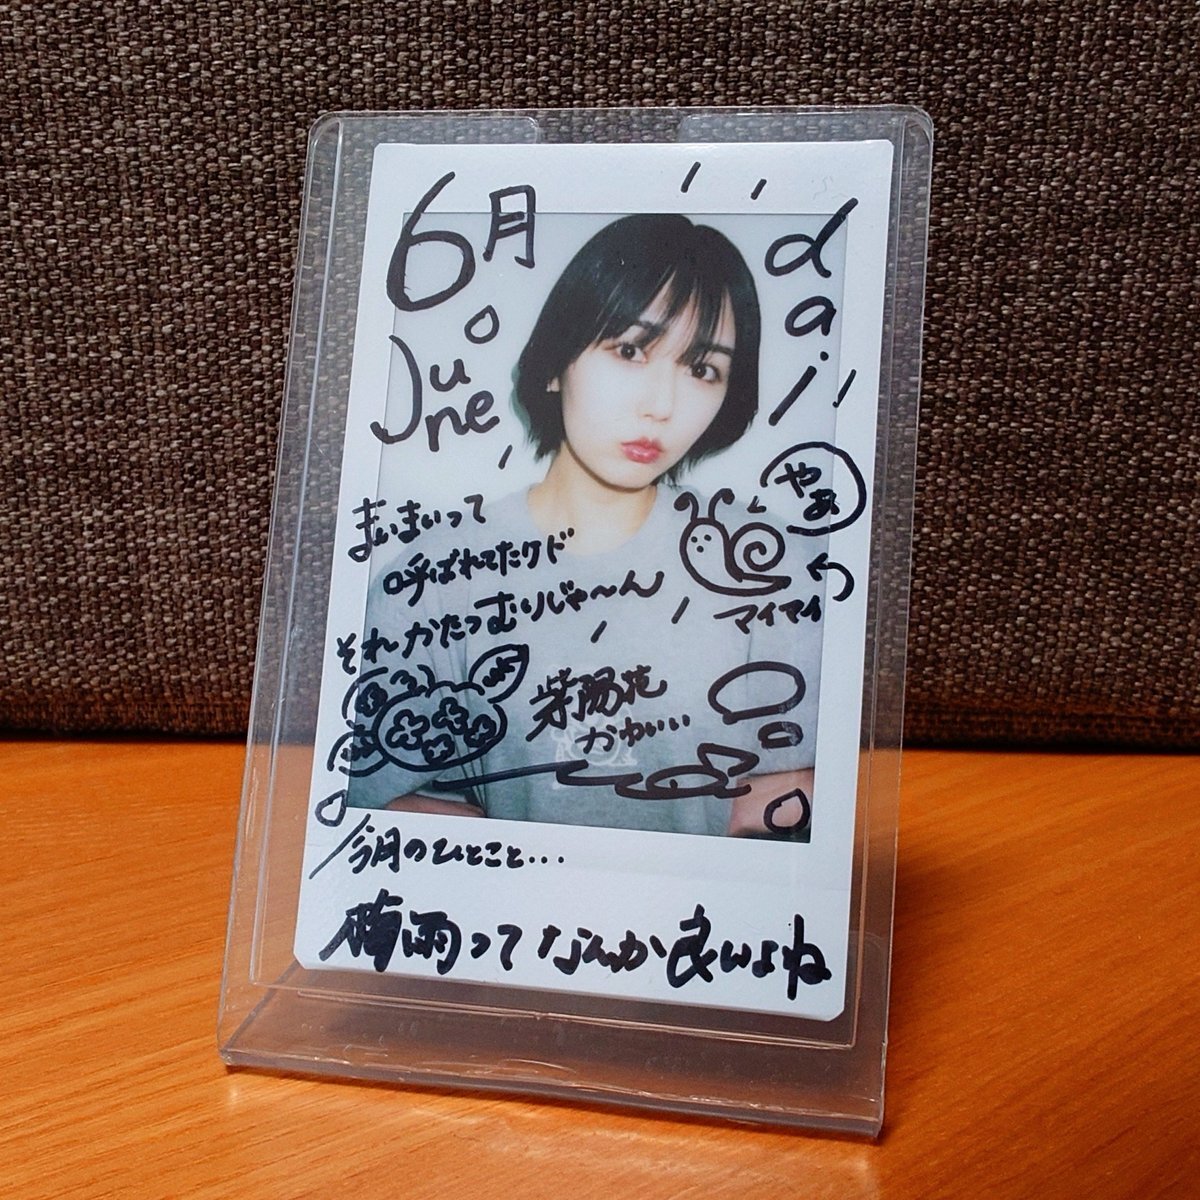 6月
June
dai
やぁ
マイマイ
まいまいって
呼ばれてたケド
それ かたつむりじゃ〜ん
紫陽花
かわいい
今月のひとこと...
梅雨ってなんか良いよね